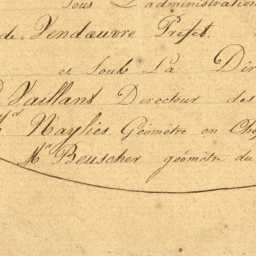 sous L'administration
de Vendœuvre Préfet.
et Sous La Dir
Vaillant Derecteur des
Naylies Géomètre en Che
Mr Beuscher géomètre du